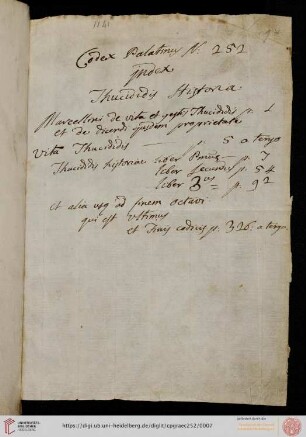 Codex Palatinus N: 252
Index
Thucididis Historia
Marcellini de vita et gestis Thucididis p. 1
et de dicendi ejusdem proprietate
Vita Thucididis — p. 5 a tergo
Thucididis historiae liber Primus p. 7
liber secundus p. 54
liber 3us = p. 92
et alia usq ad finem octavi
qui est ultimus
et Finis codicis p. 326. a tergo.
https://digi.ub.uni-heidelberg.de/diglit/cpgraec252/0007
UNIVERSITÄTS-
BIBLIOTHEK
HEIDELBERG